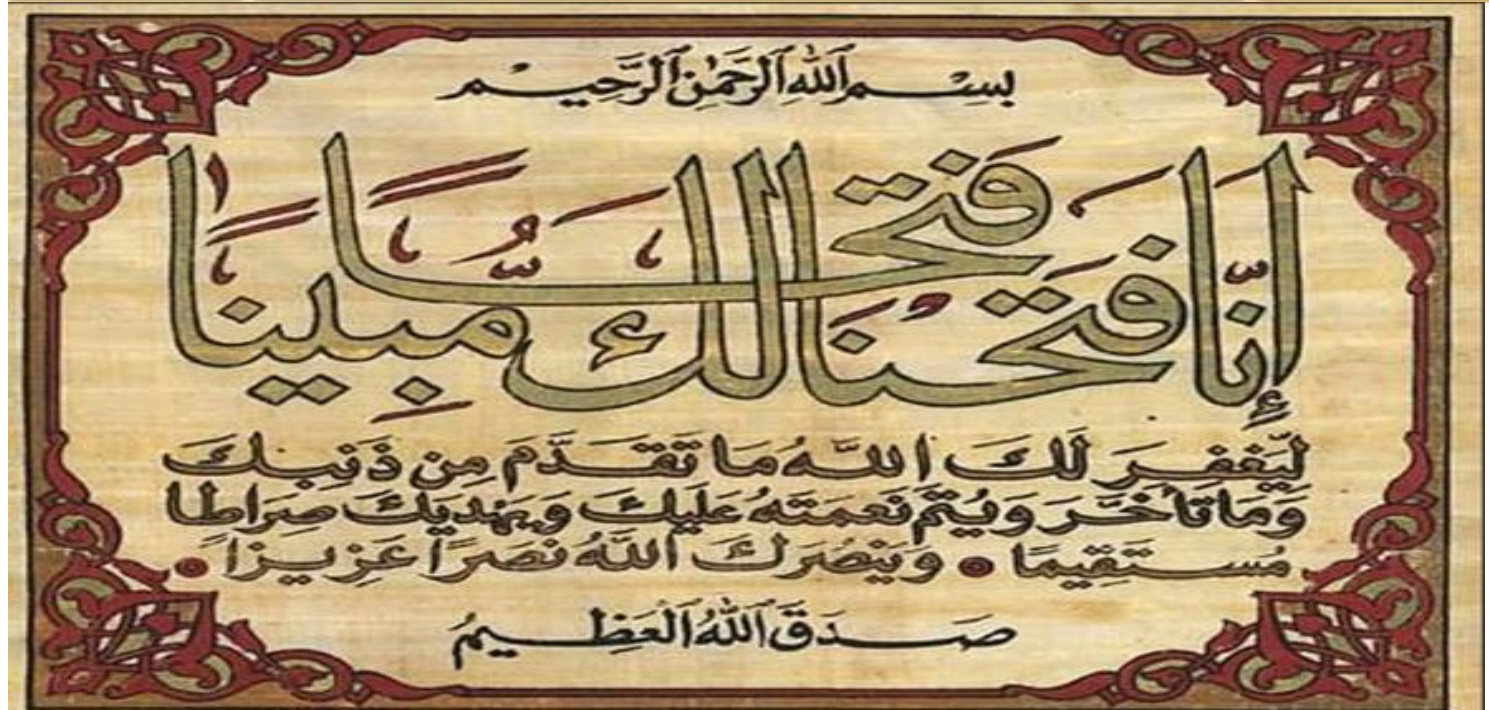 بِسْمِ ٱللَّهِ ٱلرَّحْمَٰنِ ٱلرَّحِيمِ
إِنَّا فَتَحْنَا لَكَ فَتْحًا مُّبِينًا
لِّيَغْفِرَ لَكَ اللَّهُ مَا تَقَدَّمَ مِن ذَنبِكَ
وَمَا تَأَخَّرَ وَيُتِمَّ نِعْمَتَهُ عَلَيْكَ وَيَهْدِيَكَ صِرَاطًا
مُسْتَقِيمًا • وَيَنصُرَكَ اللَّهُ نَصْرًا عَزِيزًا •
صَدَقَ ٱللَّهُ ٱلْعَظِيمُ